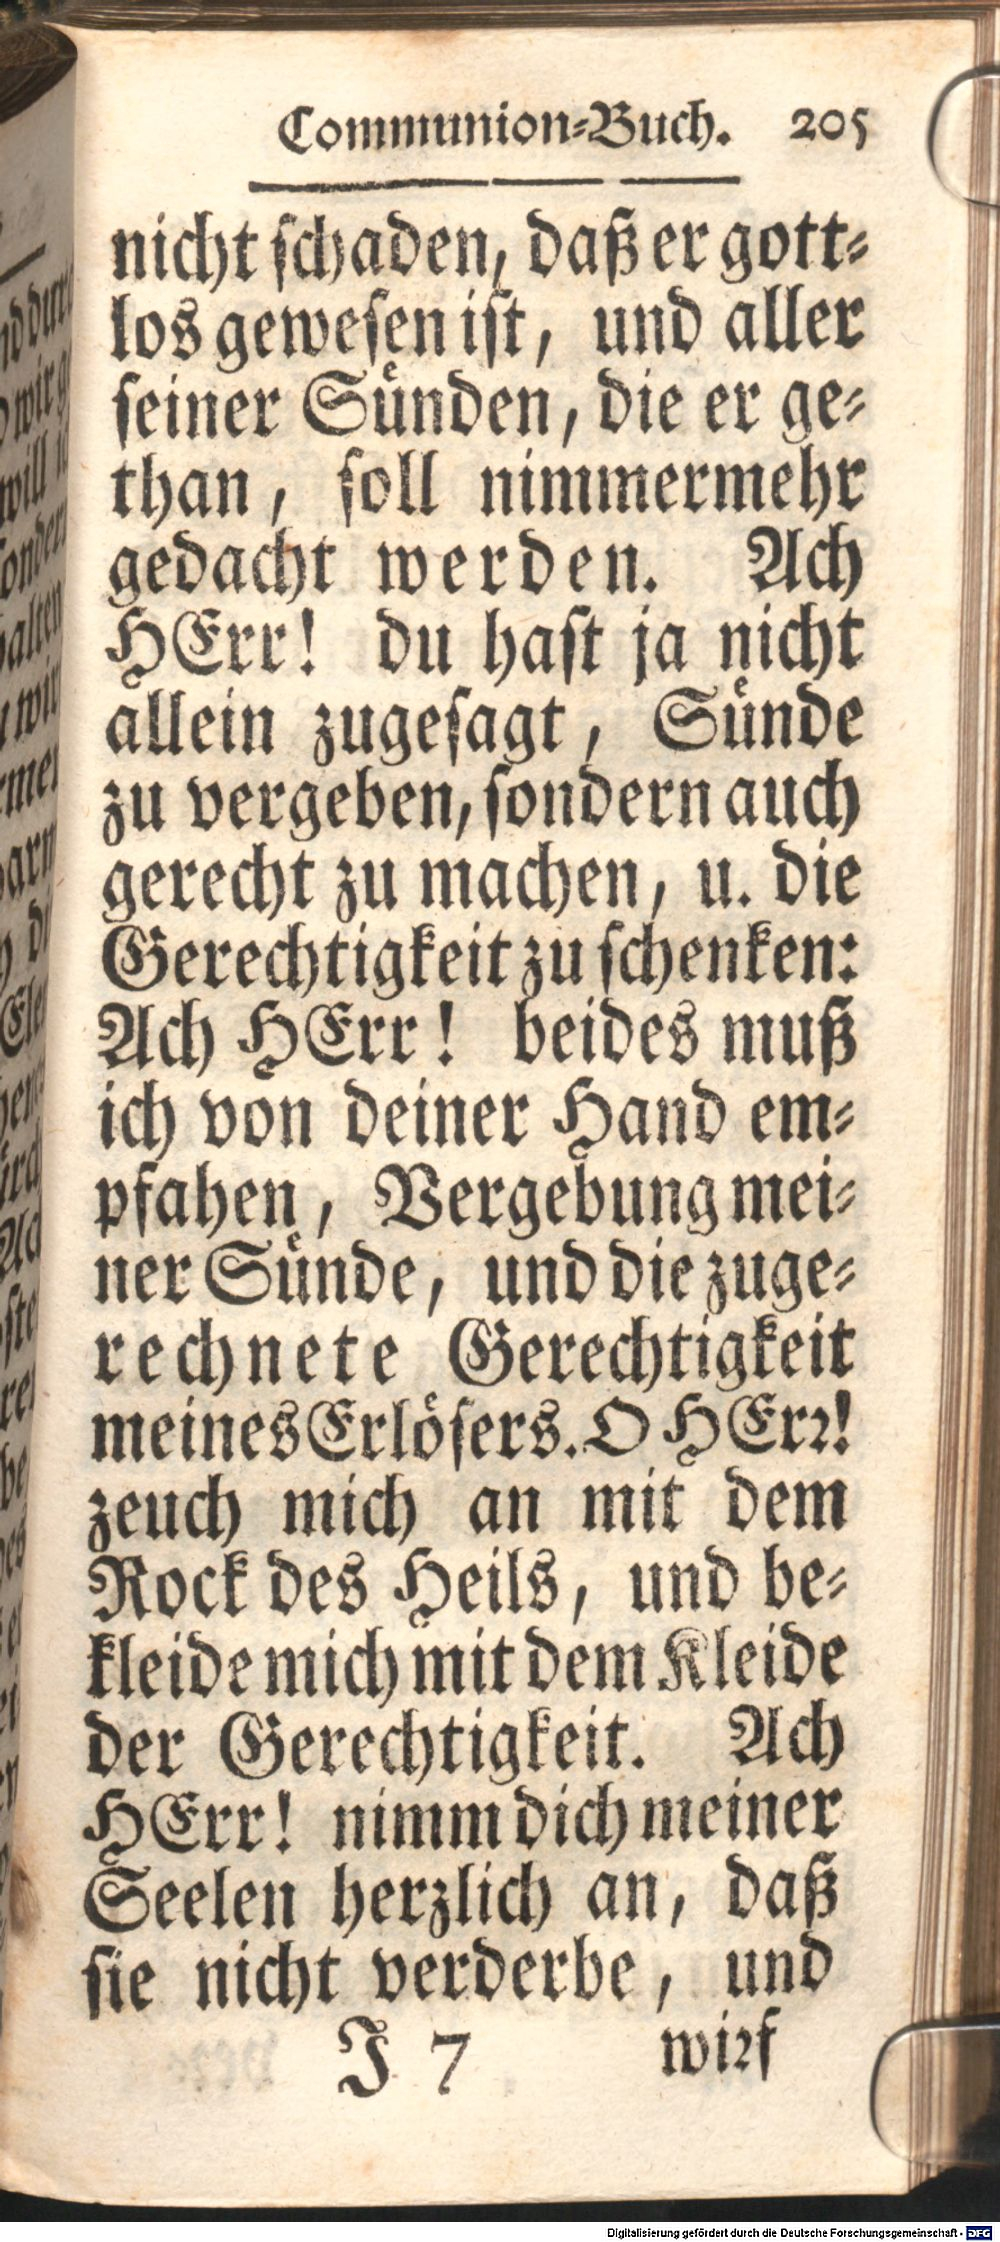 Communion-Buch. 205
nicht schaden, daß er gott-
los gewesen ist, und aller
seiner Sünden, die er ge-
than, soll nimmermehr
gedacht werden. Ach
HErr! du hast ja nicht
allein zugesagt, Sünde
zu vergeben, sondern auch
gerecht zu machen, u. die
Gerechtigkeit zu schenken:
Ach HErr! beides muß
ich von deiner Hand em-
pfahen, Vergebung mei-
ner Sünde, und die zuge-
rechnete Gerechtigkeit
meines Erlösers. O HErr!
zeuch mich an mit dem
Rock des Heils, und be-
kleide mich mit dem Kleide
der Gerechtigkeit. Ach
HErr! nimm dich meiner
Seelen herzlich an, daß
sie nicht verderbe, und
J 7 wirf
Digitalisierung gefördert durch die Deutsche Forschungsgemeinschaft - DFG